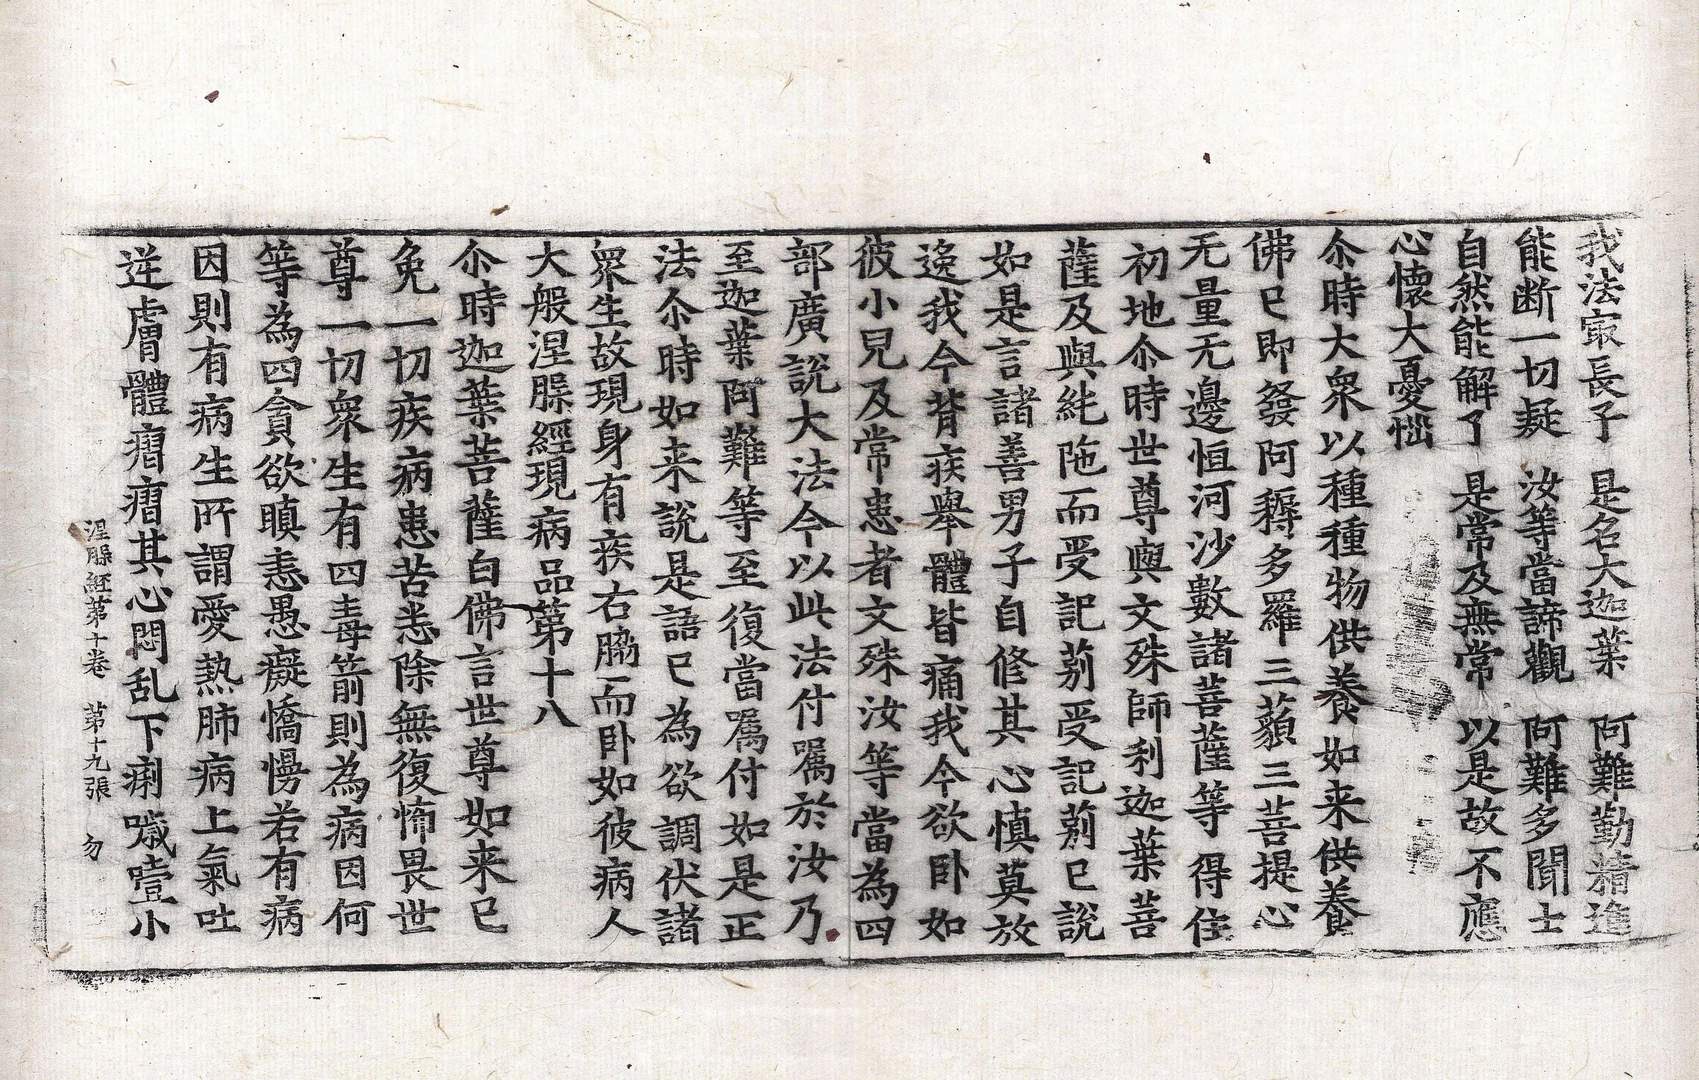 我法㝡長子 是名大迦葉 阿難勤精進
能断一切疑 汝等當諦觀 阿難多聞士
自然能解了 是常及無常 以是故不應
心懷大憂惱
尒時大衆以種種物供養如来供養
佛已即發阿耨多羅三藐三菩提心
无量无邊恒河沙數諸菩薩等得住
初地尒時世尊與文殊師利迦葉菩
薩及與純陁而受記莂受記莂已說
如是言諸善男子自修其心慎莫放
逸我今背疾舉體皆痛我今欲卧如
彼小兒及常患者文殊汝等當為四
部廣說大法今以此法付囑於汝乃
至迦葉阿難等至復當囑付如是正
法尒時如来說是語已為欲調伏諸
衆生故現身有疾右脇而卧如彼病人
大般涅槃經現病品第十八
尒時迦葉菩薩白佛言世尊如来已
免一切疾病患苦悉除無復怖畏世
尊一切衆生有四毒箭則為病因何
等為四貪欲瞋恚愚癡憍慢若有病
因則有病生所謂愛熱肺病上氣吐
逆膚體㿇㿇其心悶乱下痢噦噎小
涅槃経第十卷 第十九張 勿